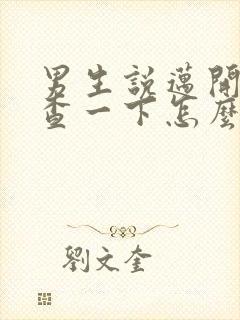 男生說邁開
查一下怎麼
劉文奎